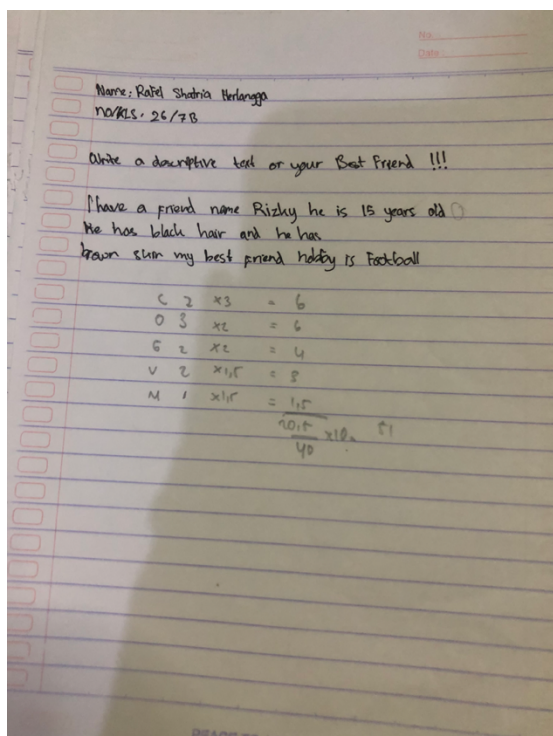 No
Date
Name: Rafel Shatria Herlangga
no/KLS. 26/7B
Write a descriptive text or your Best Friend !!!
I have a friend name Rizky he is 15 years old
He has black hair and he has
brown skin my best friend hobby is Football
C 2 x3 = 6
O 3 x2 = 6
G 2 x2 = 4
V 2 x1,5 = 3
M 1 x1,5 = 1,5
20,5
40
51